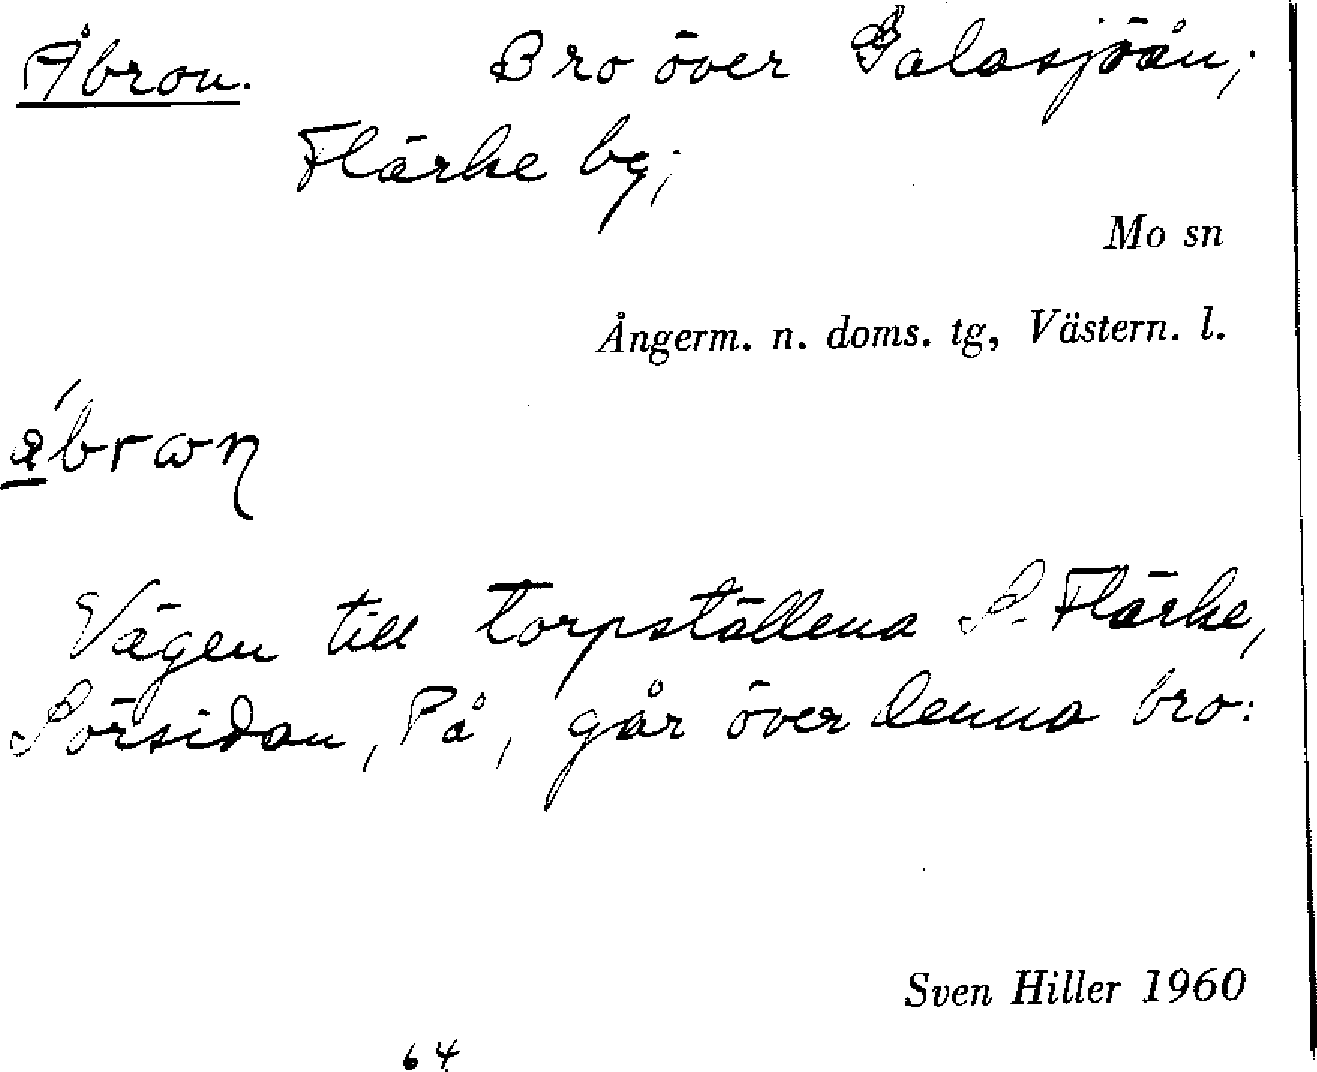 Åbron. Bro över Galasjöån;
Flärke by;
Mo sn
Ångerm. n. doms. tg, Västern. l.
Vägen till torpställena S. Flärke,
Sörsidan, På, går över denna bro.
Sven Hiller 1960
64